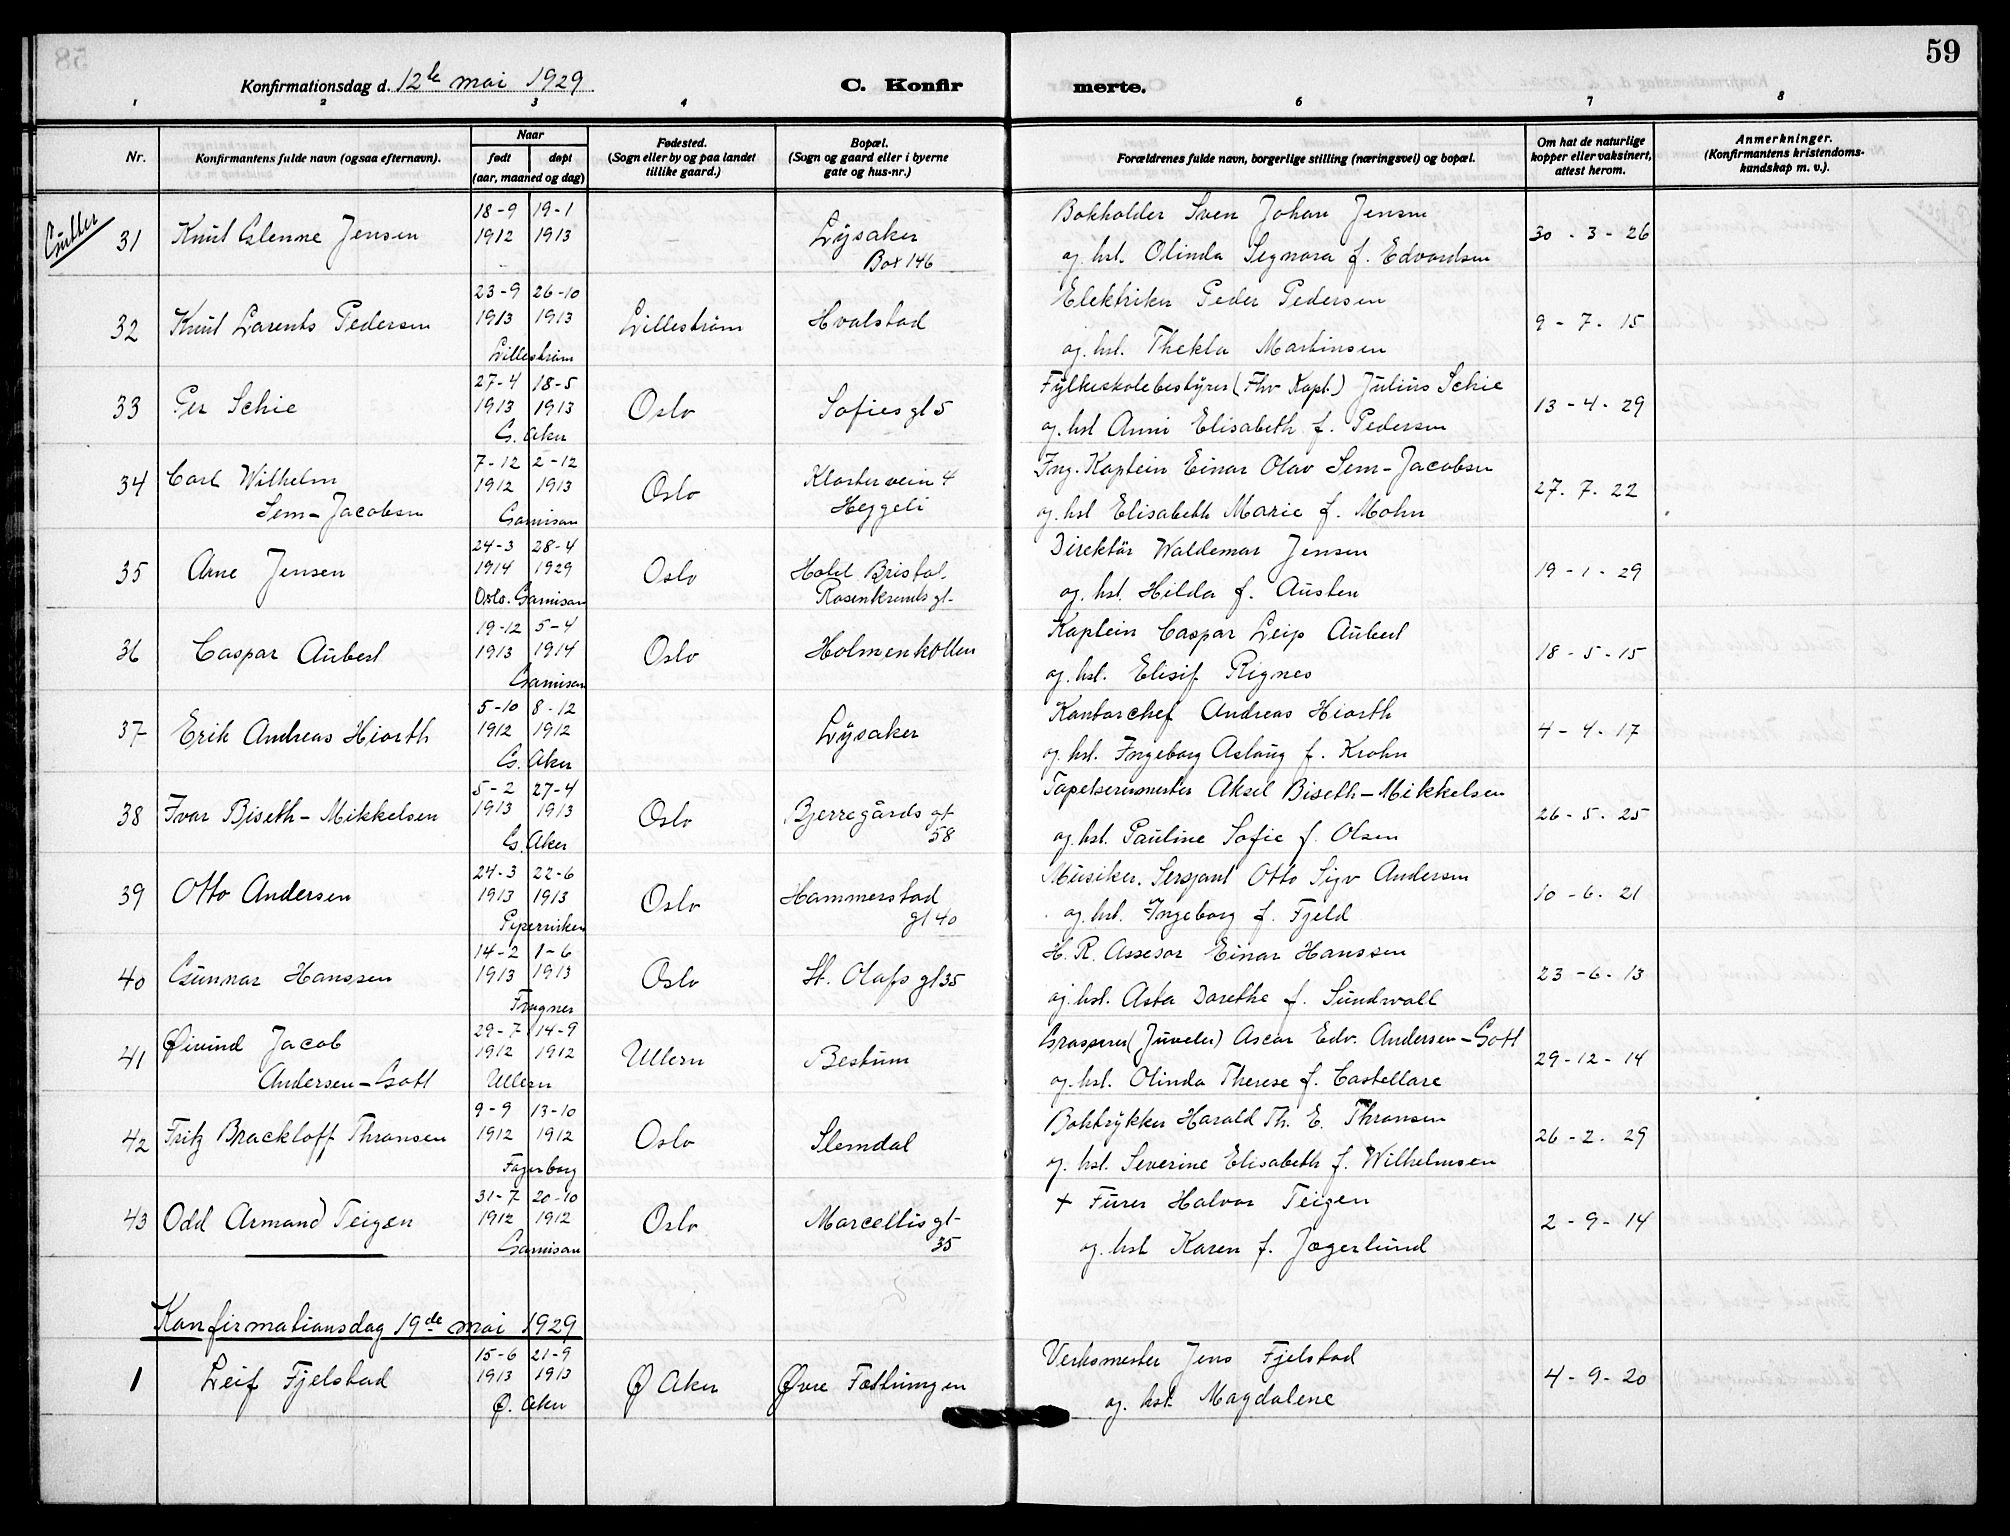 59
Konfirmationsdag d. 12te mai 1929
C. Konfirmerte.
1 2 3 4 6 7 8
Nr.
Konfirmantens fulde navn (ogsaa efternavn).
Naar
født døpt
(aar, maaned og dag)
Fødested.
(Sogn eller by og paa landet
tillike gaard.)
Bopæl.
(Sogn og gaard eller i byerne
gate og hus-nr.)
Forældrenes fulde navn, borgerlige stilling (næringsvei) og bopæl.
Om hat de naturlige
kopper eller vaksinert,
attest herom.
Anmerkninger.
(Konfirmantens kristendoms-
kundskap m. v.).
Gutter
31 Knut Glenne Jensen 18-9 1912 19-1 1913 - Lysaker
Box 146
Bokholder Sven Johan Jensen
og hst. Olinda Segnora f. Edvardsen
30-3-26
32 Knut Larents Pedersen 23-9 1913 26-10 1913 Lillestrøm Lillestrøm Hvalstad
Elektriker Peder Pedersen
og hst. Thekla Martinsen
9-7-15
33 Per Schie 27-4 1913 18-5 1913 G. Aker Oslo Sofies gt 5
Fylkeskolebestyrer (Fhv Kapt.) Julius Schie
og hst Anni Elisabeth f. Pedersen
13-4-29
34 Carl Wilhelm
Sem-Jacobsen 7-12 1912 2-12 1913 Garnison Oslo Klosterveien 4
Heggeli
Ing. Kaptein Einar Olav Sem-Jacobsen
og hst Elisabeth Marie f. Mohn
27.7.22
35 Arne Jensen 24-3 1914 28-4 1929 Oslo. Garnison Oslo Hotel Bristol.
Rosenkrants gt.
Direktør Waldemar Jensen
og hst. Hilda f. Austen
19-1-29
36 Caspar Aubert 19-12 1913 5-4 1914 Garnison Oslo Holmenkollen
Kaptein Caspar Leif Aubert
og hst. Elisif Rignes
18-5-15
37 Erik Andreas Hiorth 5-10 1912 8-12 1912 G. Aker Lysaker
Kontorchef Andreas Hiorth
og hst. Ingeborg Aslaug f. Krohn
4-4-17
38 Ivar Biseth-Mikkelsen 5-2 1913 27-4 1913 G. Aker Oslo Bjerregårds gt
58
Tapetserermester Aksel Biseth-Mikkelsen
og hst. Pauline Sofie f. Olsen
26-5-25
39 Otto Andersen 24-3 1913 22-6 1913 Piperviken Oslo Hammerstad
gt 40
Musiker. Sersjant Otto Sigv Andersen
og hst. Ingeborg f. Fjeld
10-6-21
40 Gunnar Hanssen 14-2 1913 1-6 1913 Frogner Oslo St. Olafs gt 35
H. R. Assesor Einar Hanssen
og hst. Asta Dorethe f. Sundwall
23-6-13
41 Øivind Jacob
Andersen-Gott 29-7 1912 14-9 1912 Ullern Ullern Bestum
Grosserer (Juveler) Ascar Edv. Andersen-Gott
og hst. Olinda Therese f. Castellare
29-12-14
42 Fritz Brackloff Thransen 9-9 1912 13-10 1912 Fagerborg Oslo Slemdal
Boktrykker Harald Th. E. Thransen
og hst. Severine Elisabeth f. Wilhelmsen
26-2-29
43 Odd Armand Teigen 31-7 1912 20-10 1912 Garnison Oslo Marcellis gt
35
+ Furer Halvor Teigen
og hst Karen f. Jægerlund
2-9-14
Konfirmationsdag 19de mai 1929
1 Leif Fjelstad 15-6 1913 21-9 1913 Ø. Aker Ø Aker Øvre Fossumgen
Verksmester Jens Fjelstad
og hst. Magdalene
4-9-20